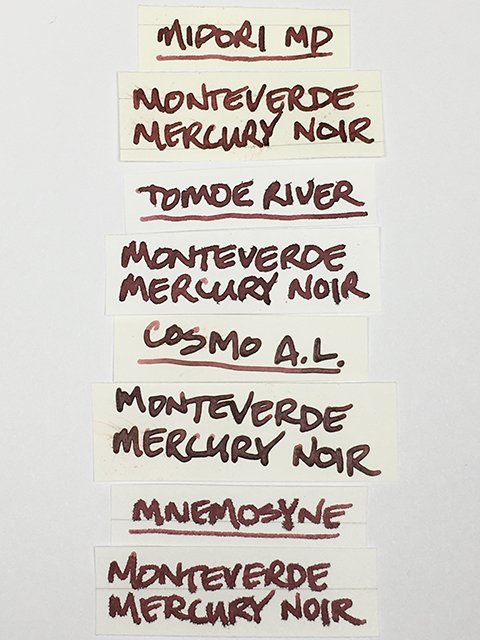 MIDORI MD
MONTEVERDE
MERCURY NOIR
TOMOE RIVER
MONTEVERDE
MERCURY NOIR
COSMO A.L.
MONTEVERDE
MERCURY NOIR
MNEMOSYNE
MONTEVERDE
MERCURY NOIR